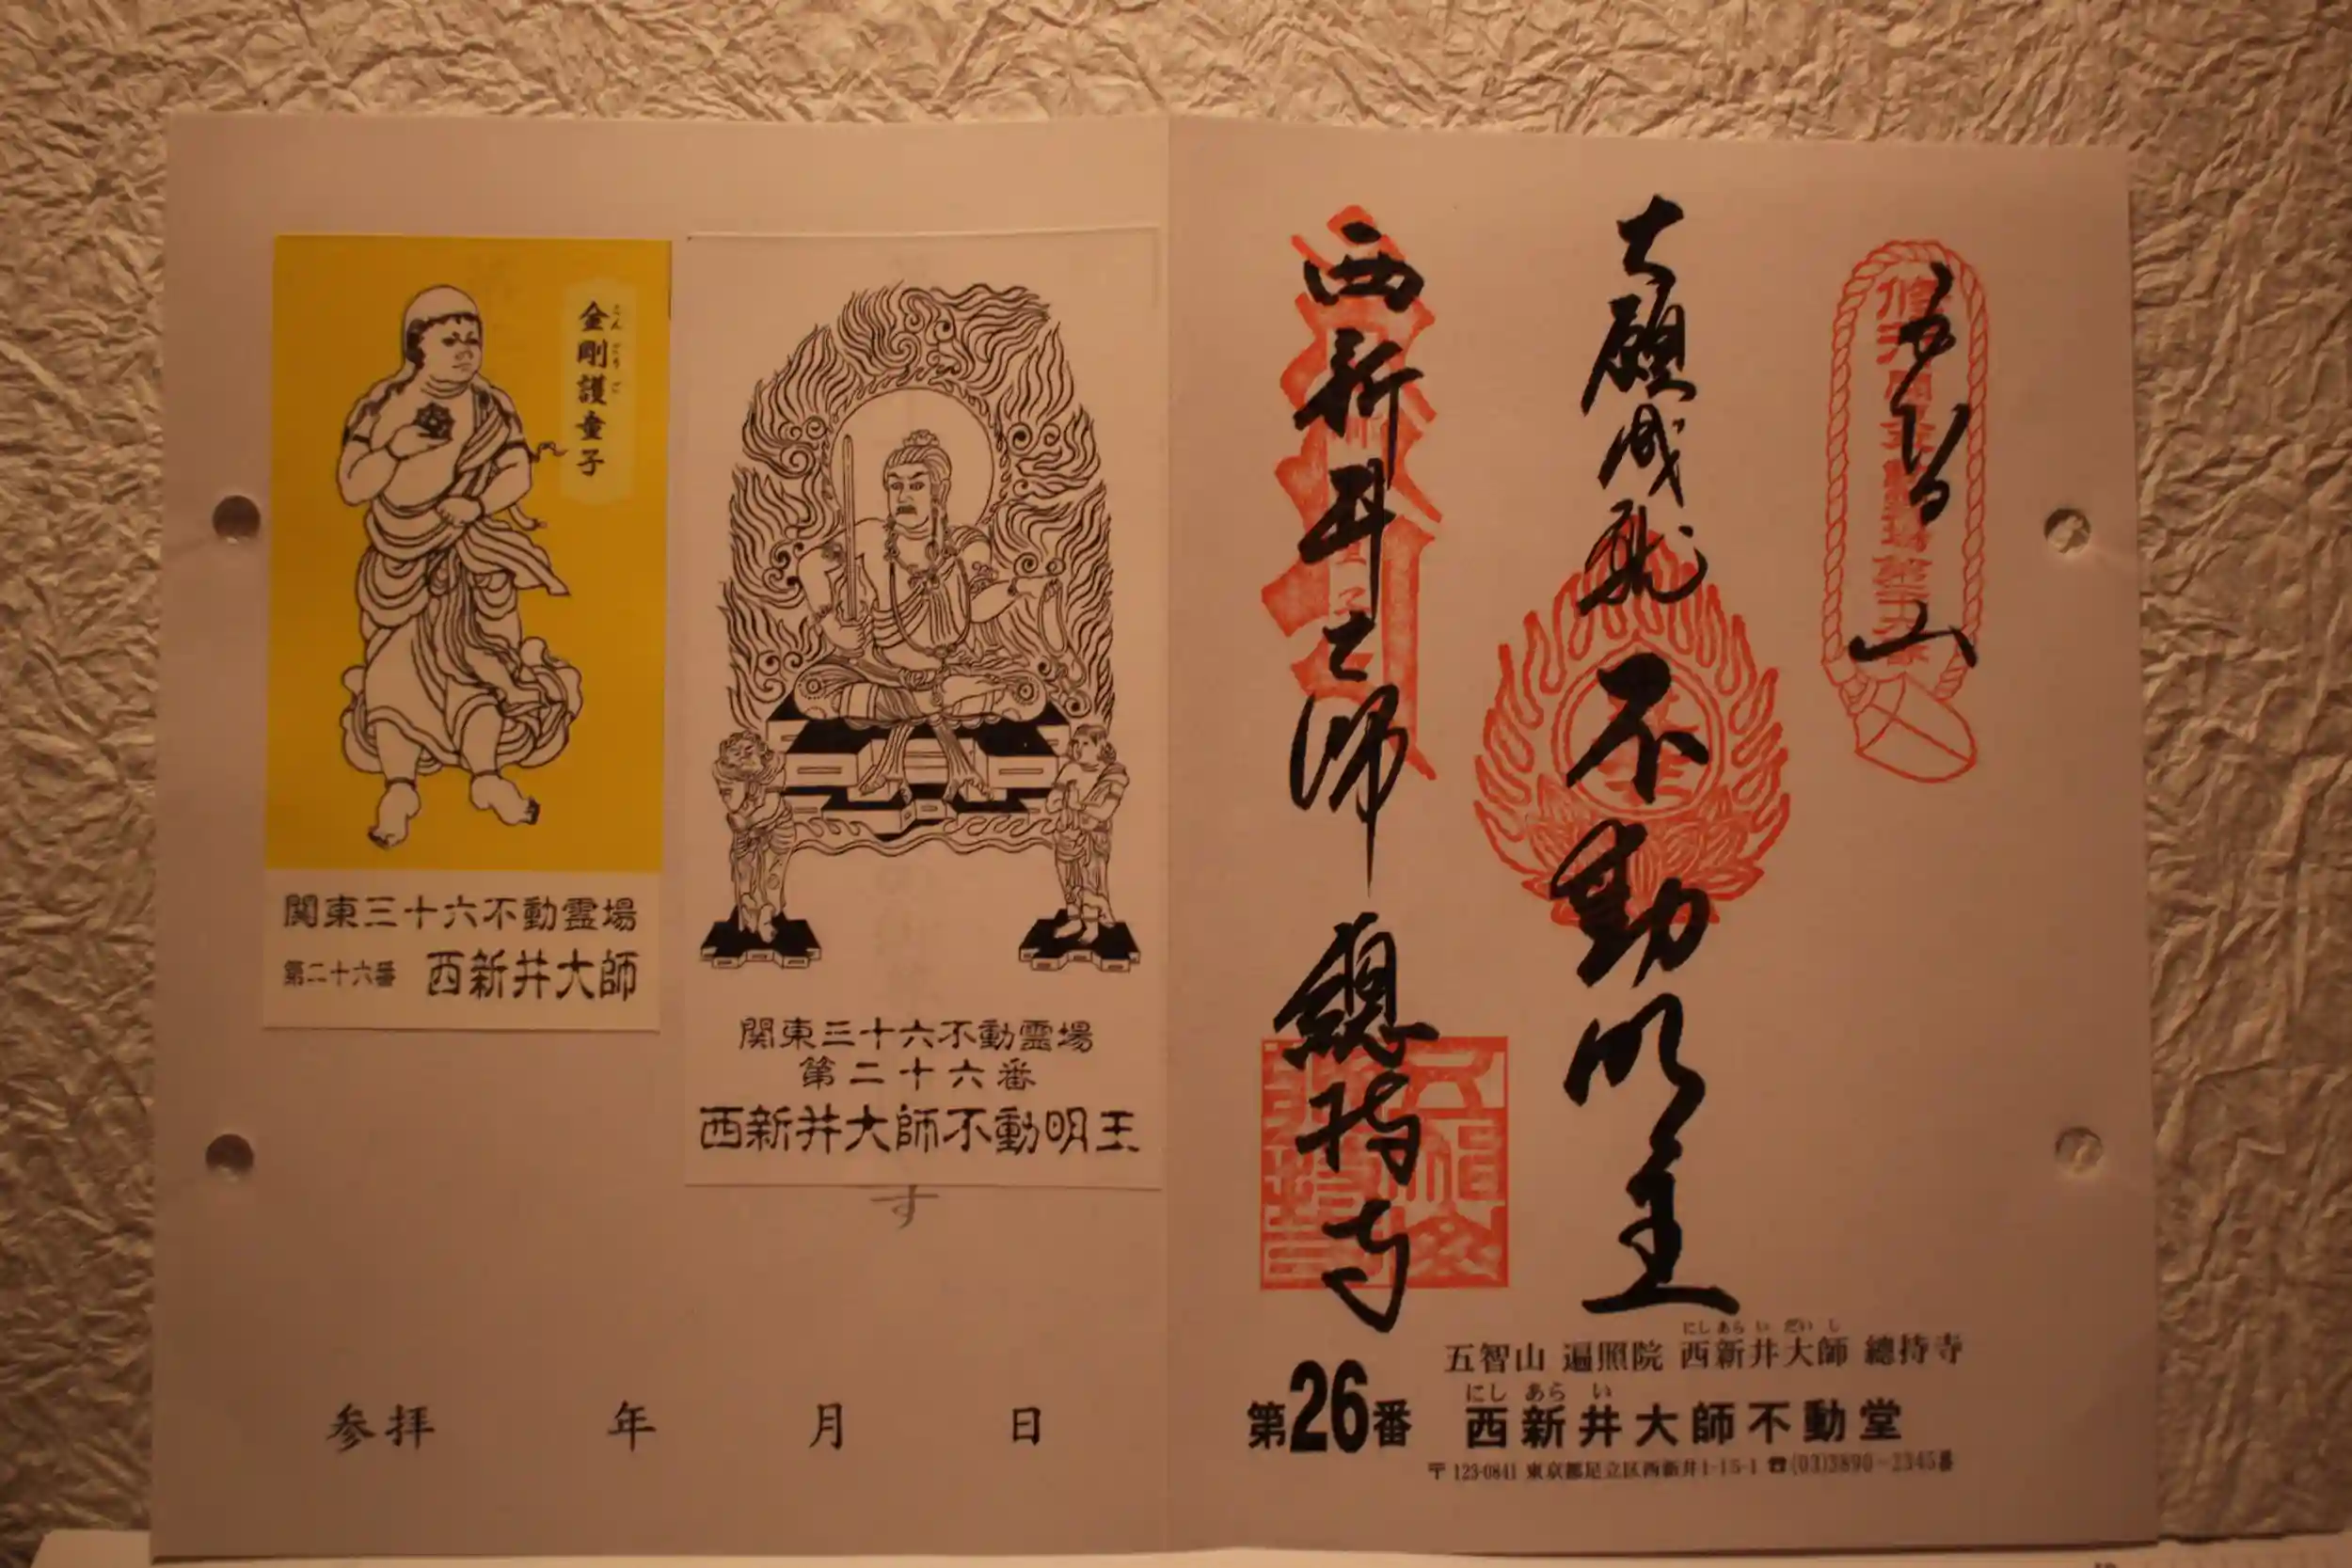 金剛護童子
こんごうご
関東三十六不動霊場
第二十六番 西新井大師
関東三十六不動霊場
第二十六番
西新井大師不動明王
す
参拝 年 月 日
山
大願成就 不動明王
西新井大師 總持寺
にしあらいだいし
五智山 遍照院 西新井大師 總持寺
にしあらい
第26番 西新井大師不動堂
〒123-0841 東京都足立区西新井1-15-1 ☎(03)3890-2345番